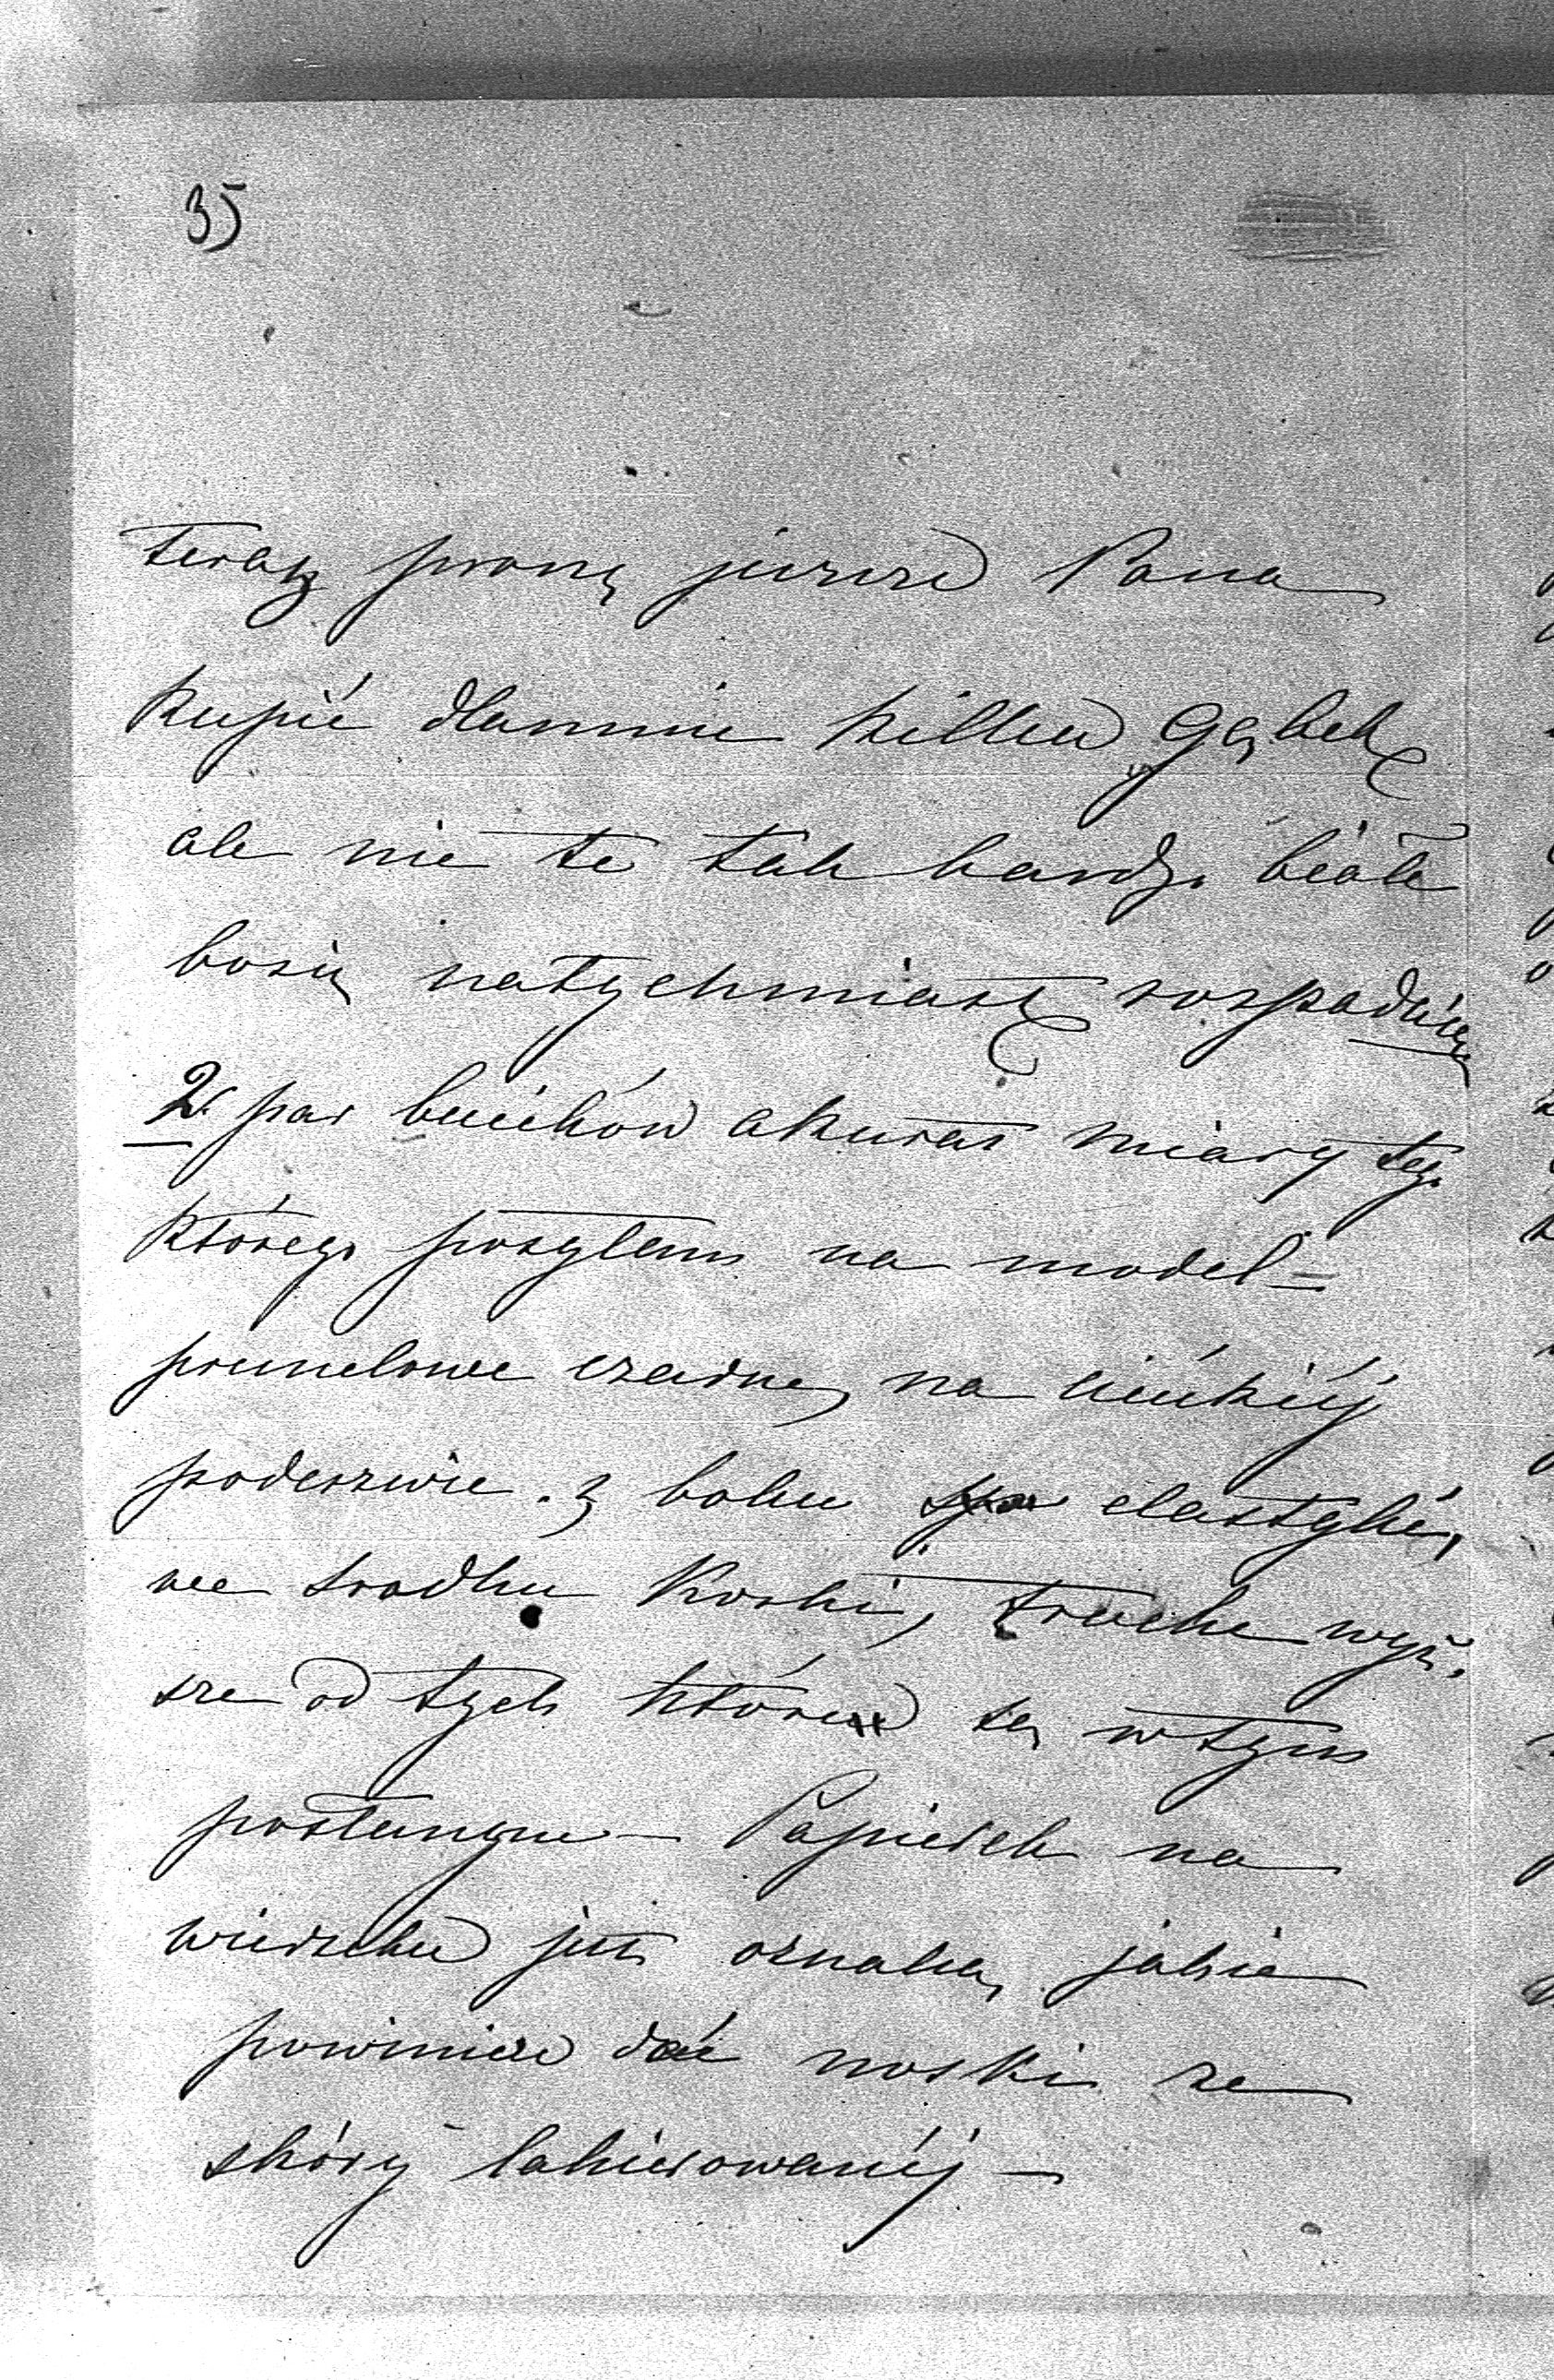 35
Teraz proszę jeszcze Pana
kupić dlamnie kilku gąbek
ale nie te tak bardzo białe
bosię natychmiast rospadną
2. par bucików akurat miary tego
którego posyłam na model =
prunelowe czarne, na cieńkiéj
podeszwie. z boku elastyki,
we srodku Korki, troche wyż.
sze od tych które są wtym
postungue – Papierek na
wierzchu jest oznaką jakie
powinne dać noski ze
skóry lakierowanéj –